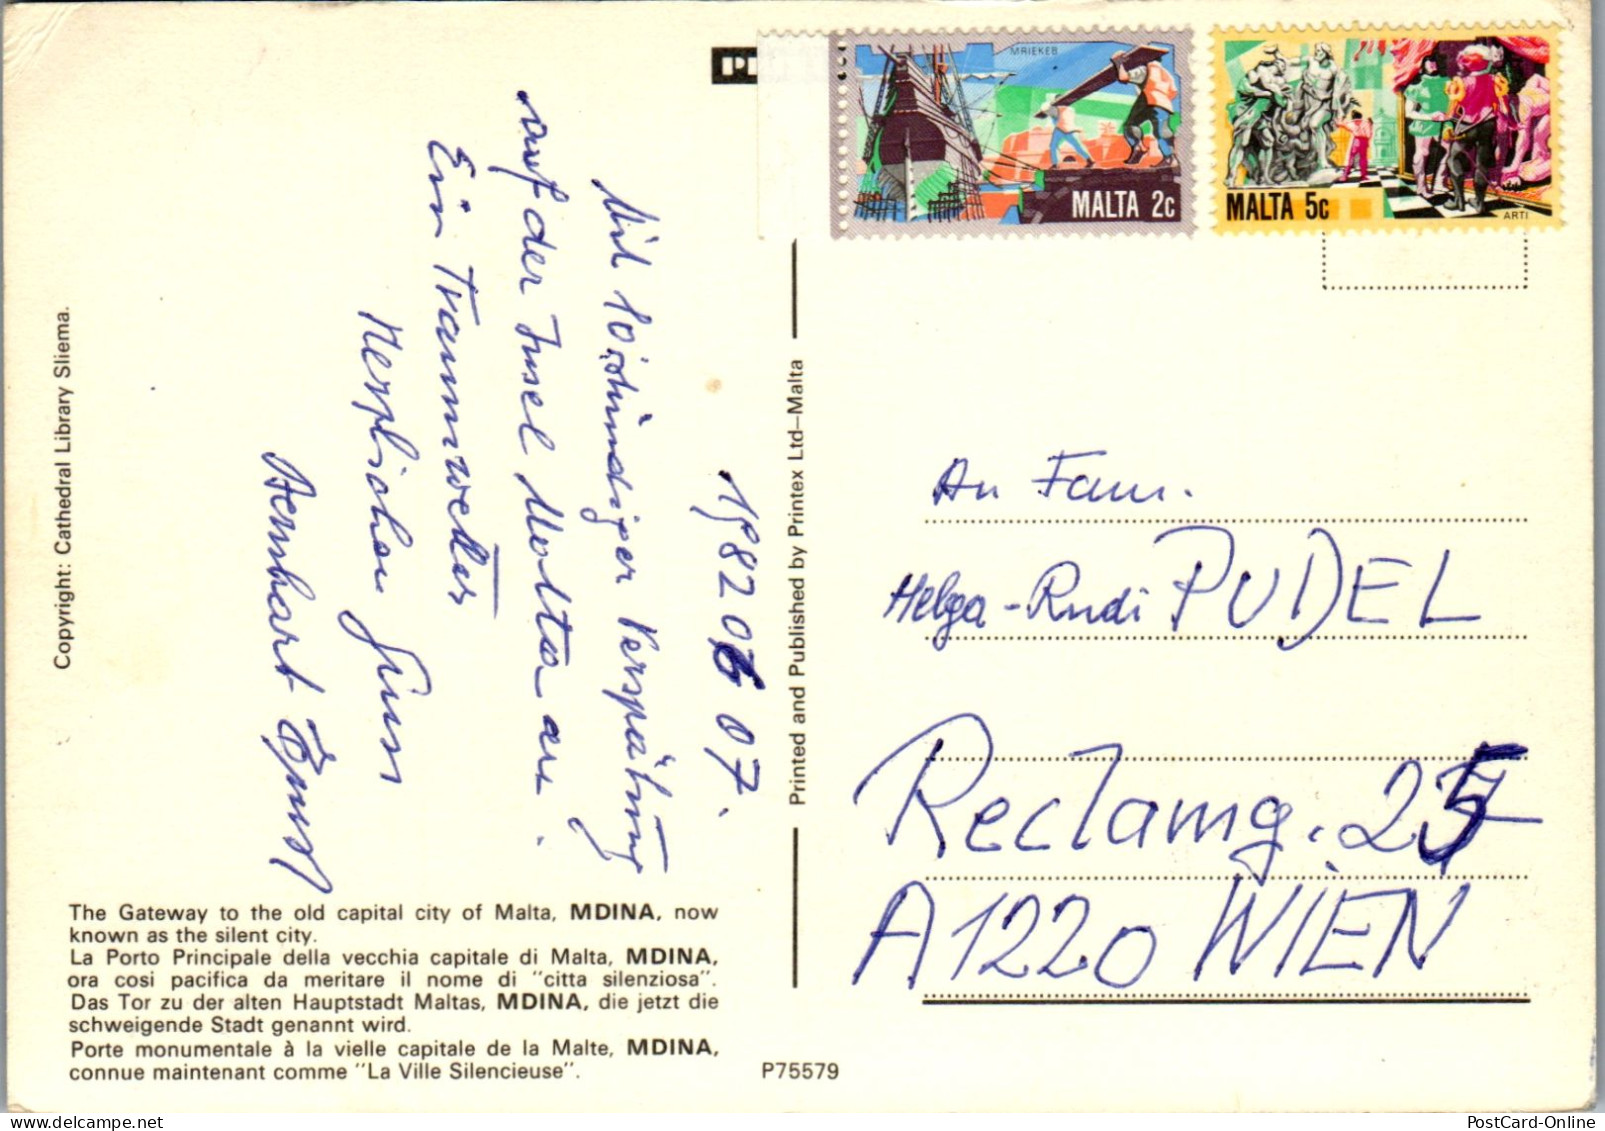 MRIEKEB
MALTA 2c
MALTA 5c
ARTI
1982 06 07.
Mit 10 stündiger Verspätung
auf der Insel Malta an.
Ein Traumwetter
Bernhart Ernst
An Fam.
Helga-Rudi PUDEL
Reclamg. 25
A1220 WIEN
Copyright: Cathedral Library Sliema.
Printed and Published by Printex Ltd—Malta
The Gateway to the old capital city of Malta, MDINA, now
known as the silent city.
La Porto Principale della vecchia capitale di Malta, MDINA,
ora cosi pacifica da meritare il nome di "citta silenziosa".
Das Tor zu der alten Hauptstadt Maltas, MDINA, die jetzt die
schweigende Stadt genannt wird.
Porte monumentale à la vielle capitale de la Malte, MDINA,
connue maintenant comme "La Ville Silencieuse".
P75579
PostCard-Online.com